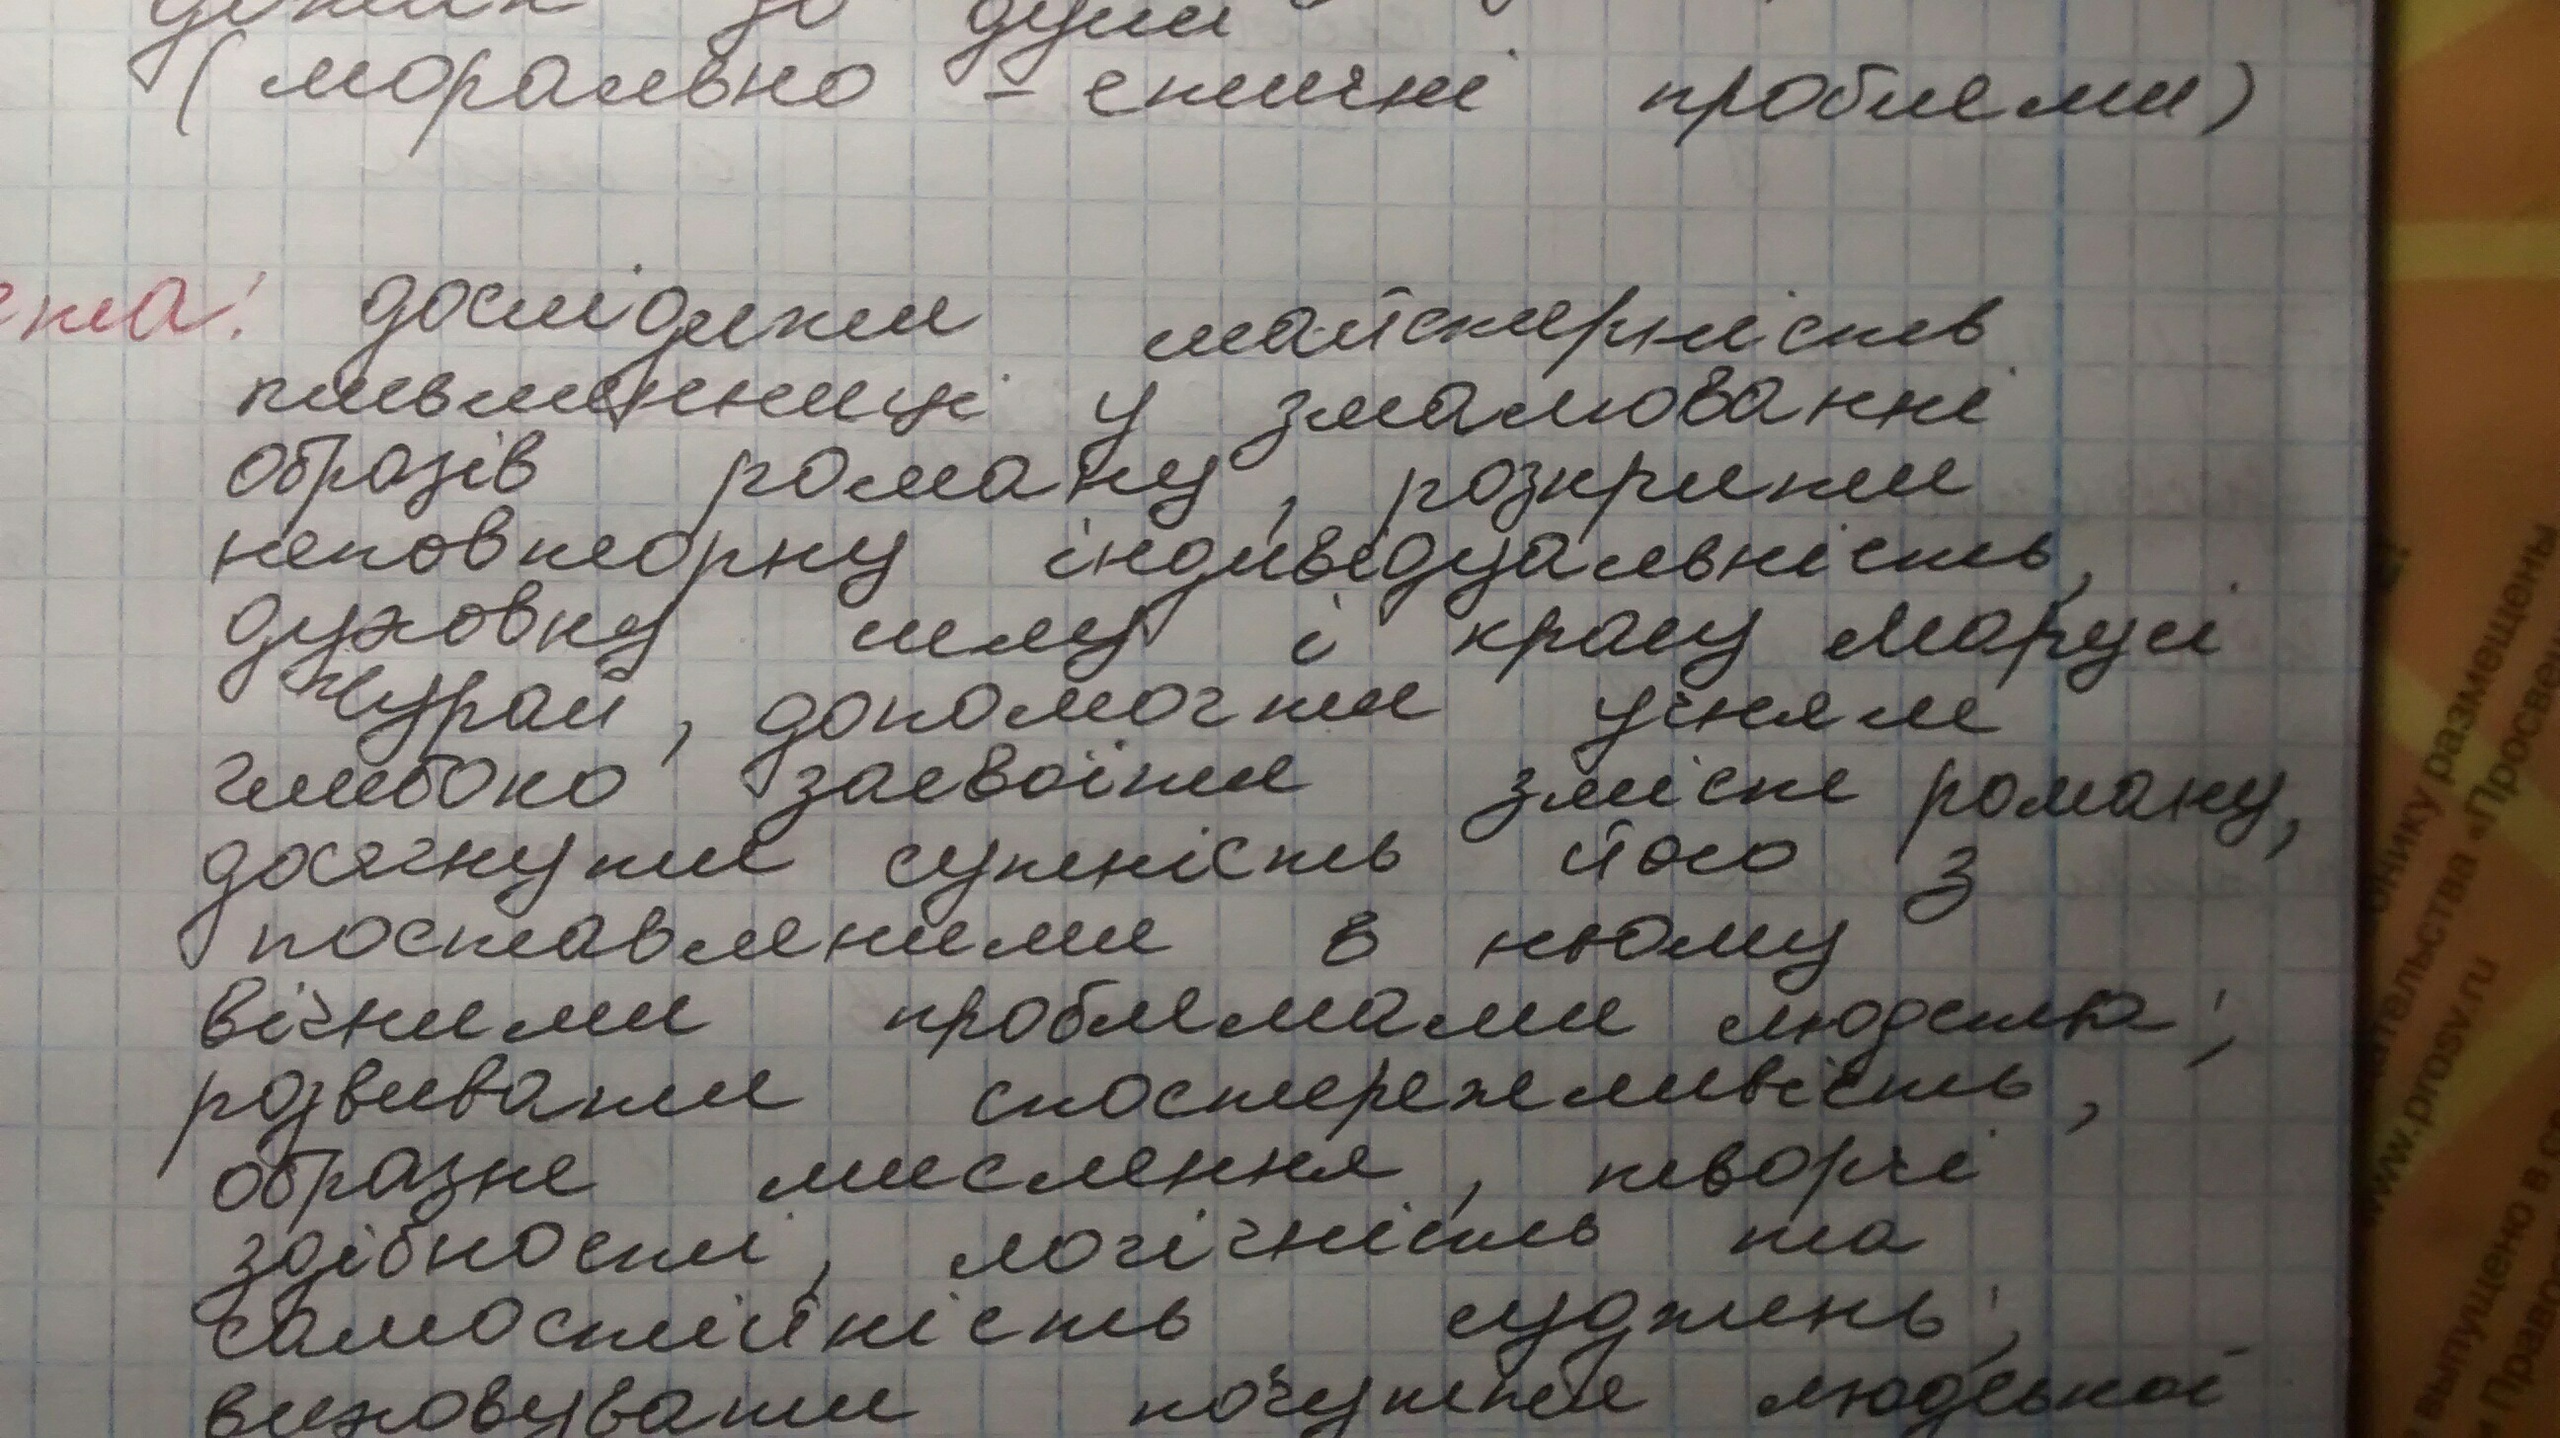 до душі
(морально - етичні проблеми)
ета: дослідити майстерність
письменниці у змалюванні
образів роману, розкрити
неповторну індивідуальність,
духовну силу і красу Марусі
Чурай, допомогти учням
глибоко засвоїти зміст роману,
досягнути сутність його з
поставленими в ньому
вічними проблемами людства;
розвивати спостережливість,
образне мислення, творчі
здібності, логічність та
самостійність суджень;
виховувати почуття людської
ебнику размещены
ательства «Просвещен
www.prosv.ru
выпущено в св
и Правос